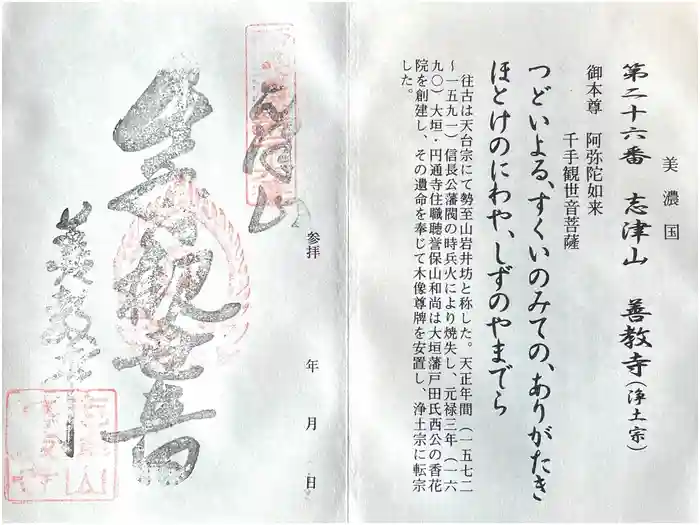 美濃国
第二十六番 志津山 善教寺(浄土宗)
御本尊 阿弥陀如来
千手観世音菩薩
つどいよる、すくいのみての、ありがたき
ほとけのにわや、しずのやまでら
往古は天台宗にて勢至山岩井坊と称した。天正年間(一五七二
〜一五九一)信長公藩閥の時兵火により焼失し、元禄三年(一六
九〇)大垣・円通寺住職聴誉保山和尚は大垣藩戸田氏西公の香花
院を創建し、その遺命を奉じて木像尊牌を安置し、浄土宗に転宗
した。
参拝 年 月 日
志津山
千手観世音
善教寺